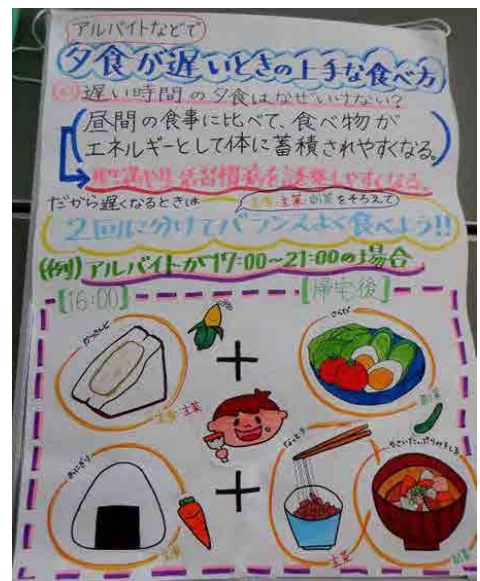 アルバイトなどで
夕食が遅いときの上手な食べ方
遅い時間の夕食はなぜいけない?
昼間の食事に比べて、食べ物が
エネルギーとして体に蓄積されやすくなる。
肥満や生活習慣病を誘発しやすくなる。
だから遅くなるときは
主食・主菜・副菜をそろえて
2回に分けてバランスよく食べよう!!
(例)アルバイトが17:00~21:00の場合
[16:00]
[帰宅後]
かつさんど
主食・主菜
+
さらだ
副菜
おにぎり
主食
+
なっとう
主菜
やさいたっぷりみそしる
副菜